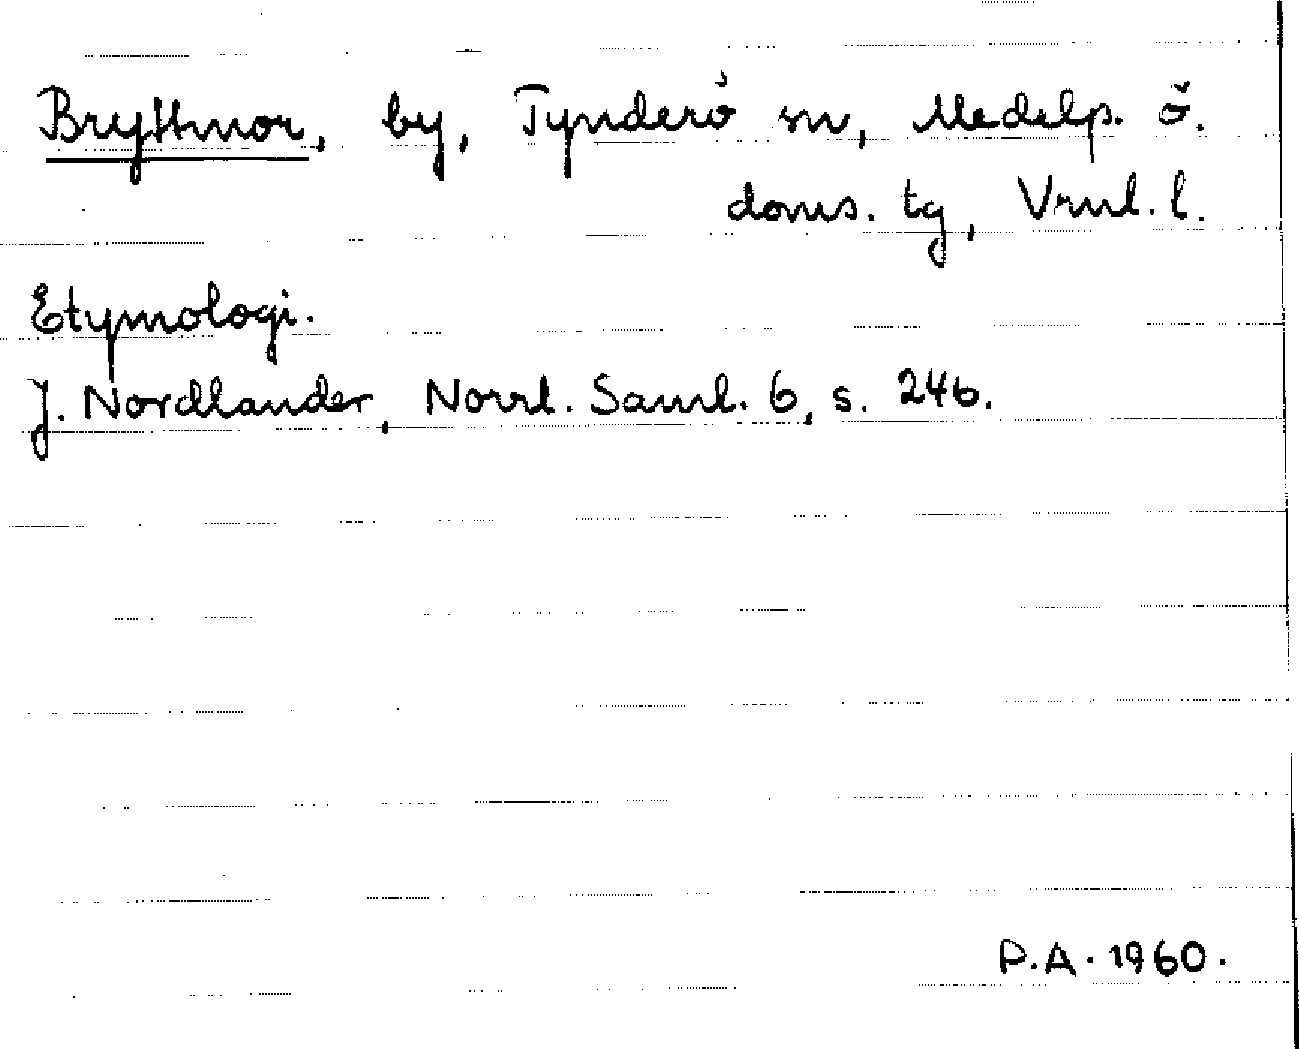 Bryttmor, by, Tynderö sn, Medelp. ö.
doms. tg, Vrnl. l.
Etymologi.
J. Nordlander, Norrl. Saml. 6, s. 246.
P.A. 1960.